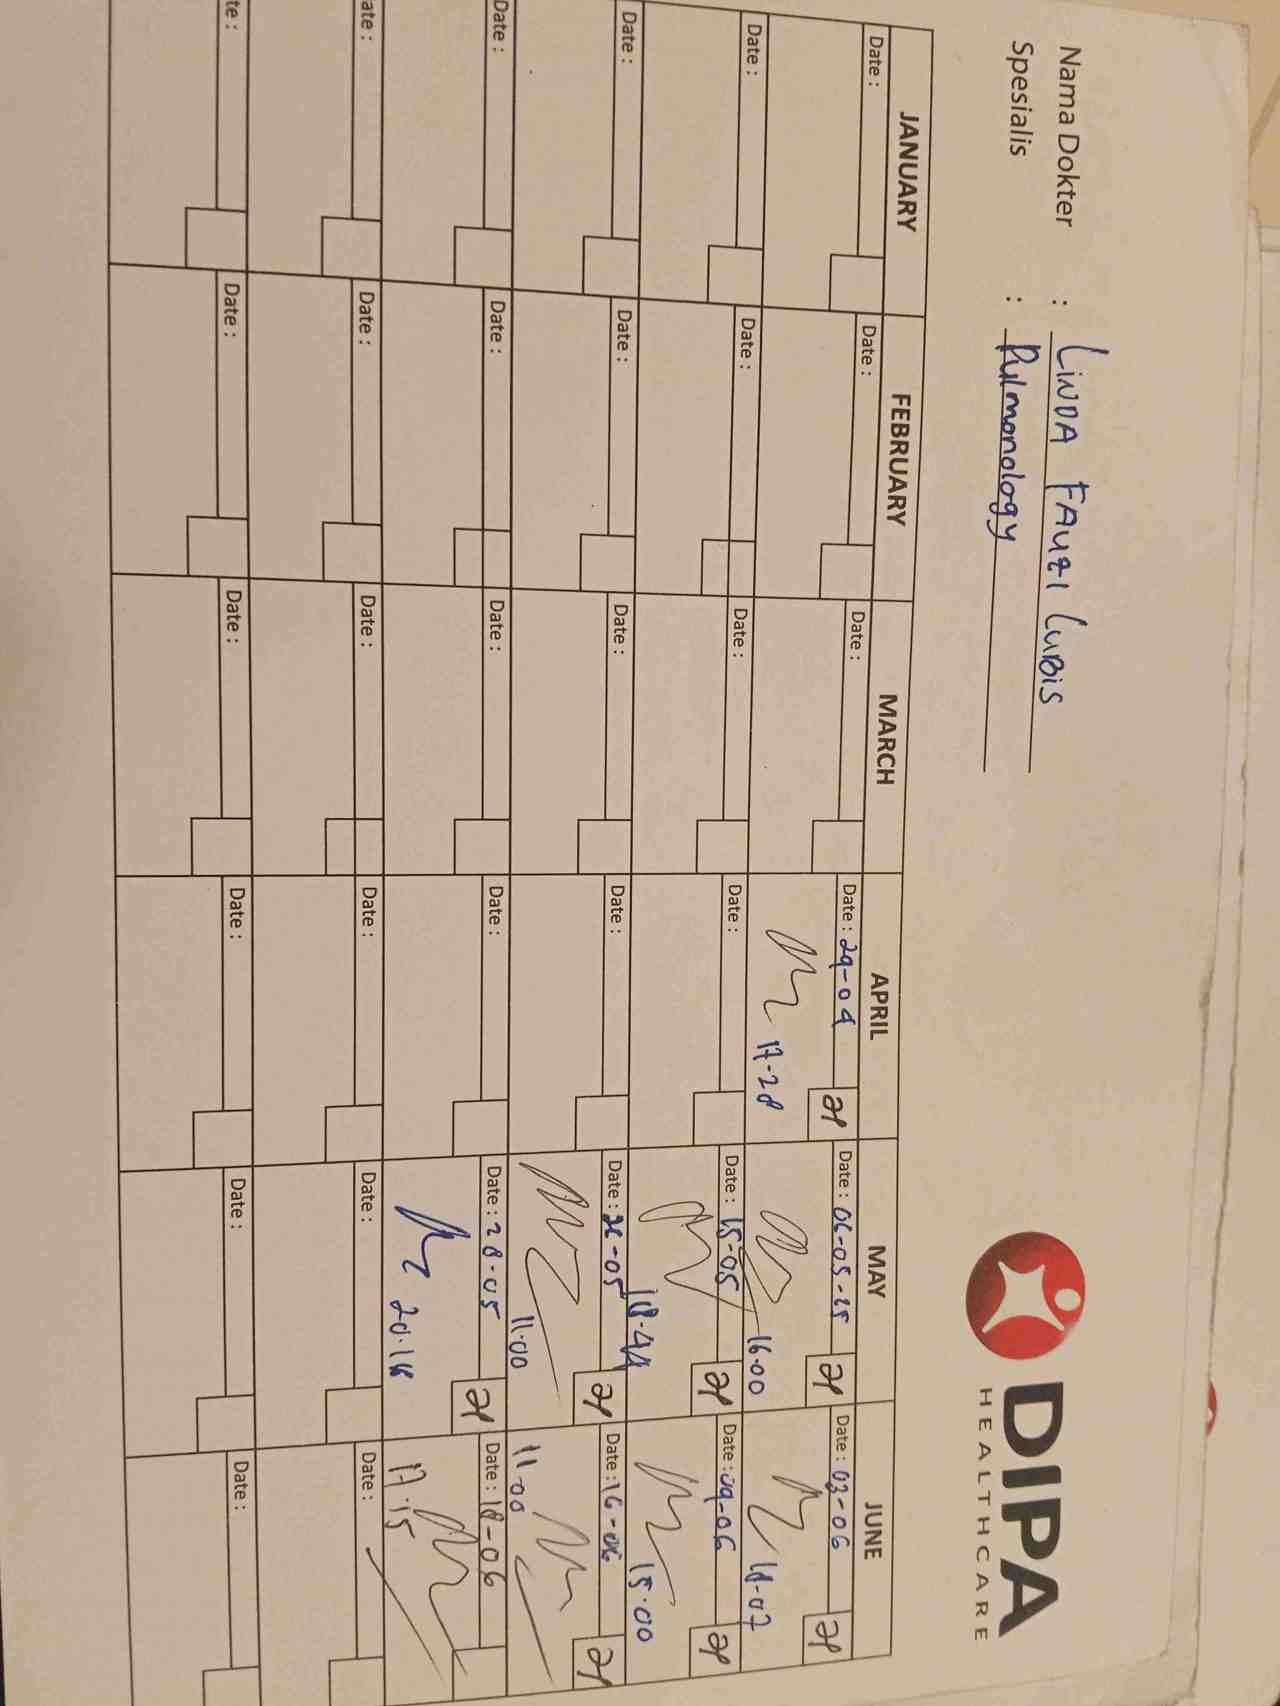 DIPA
HEALTHCARE
Nama Dokter : LINDA FAUZI LUBIS
Spesialis : Pulmonology
JANUARY FEBRUARY MARCH APRIL MAY JUNE
Date : Date : Date : Date : 29-04 Date : 06-05-25 Date : 03-06
17-28 16-00 18-07
Date : Date : Date : Date : Date : 15-05 Date : 09-06
18-44 15.00
Date : Date : Date : Date : Date : 26-05 Date : 16-06
11.00 11-00
Date : Date : Date : Date : Date : 28-05 Date : 18-06
20.18 17.15
ate : Date : Date : Date : Date : Date :
te : Date : Date : Date : Date : Date :